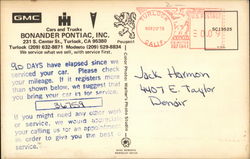 GMC
Cars and Trucks
BONANDER PONTIAC, INC.
231 S. Center St., Turlock, CA 95380
Turlock (209) 632-8871 Modesto (209) 529-8834
We service what we sell, with service first.
Peugeot
TURLOCK
CALIF.
90 DAYS have elapsed since we
serviced your car. Please check
your mileage. If it registers more
than shown below, we suggest that
you bring your car in for service.
If you might need any other work
or service, we would appreciate
your calling us for an appointment
in order to give you the best
service.
Jack Harmon
4407 E. Taylor
Denair